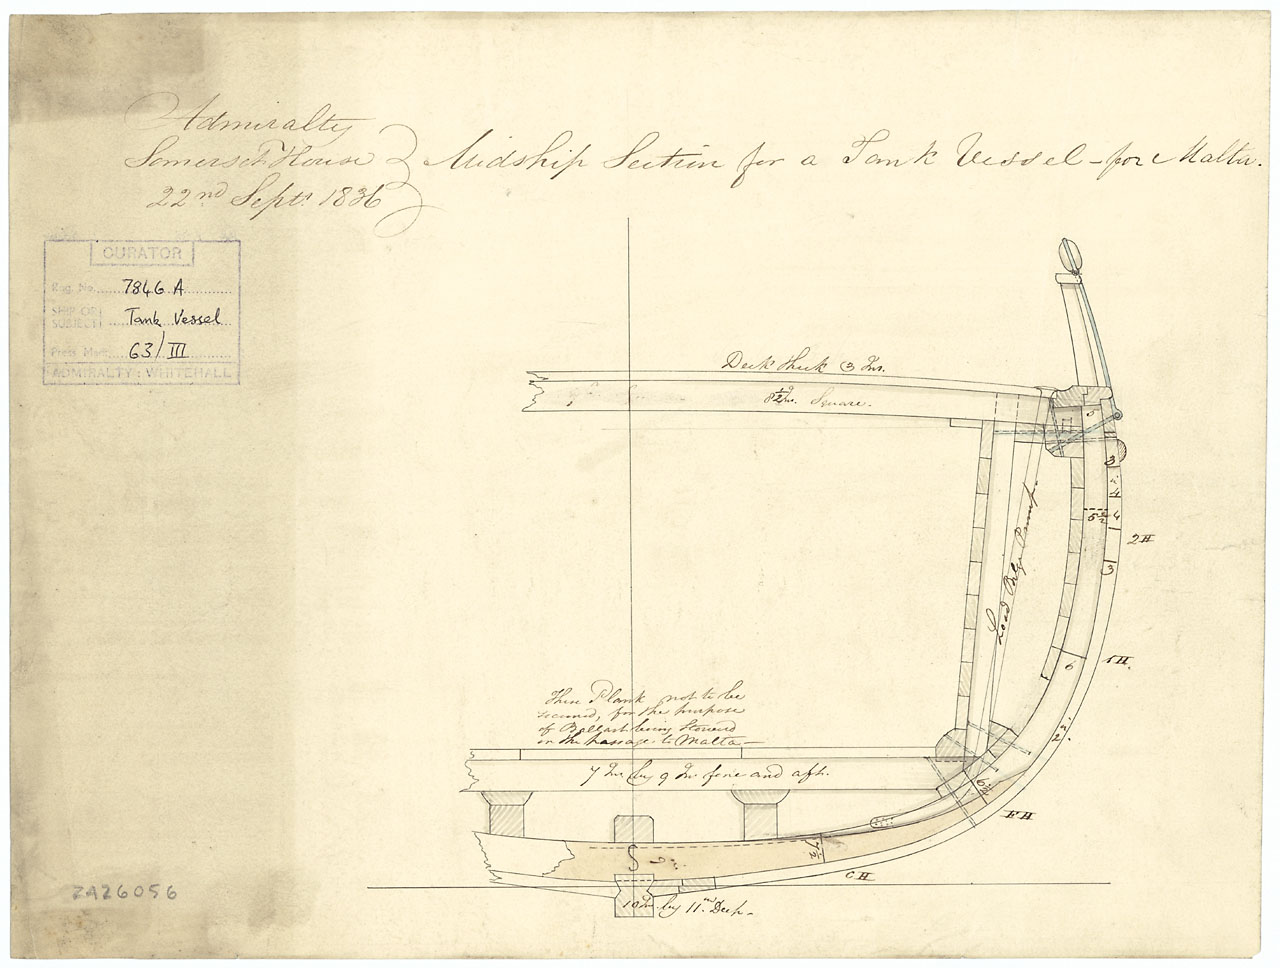 Admiralty
Somerset House
22nd Septr. 1836
Midship Section for a Tank Vessel - for Malta.
CURATOR
Reg. No. 7846 A
SHIP OR SUBJECT: Tank Vessel
Press Mark 63/III
ADMIRALTY: WHITEHALL
Deck thick 3 Ins.
8½ In. Square.
5
3
4
5½ 4
2H
3
Lead Bilge Pump.
1H.
6
2½
These Plank not to be
secured, for the purpose
of Ballast being Stowed
on the passage to Malta
7 Ins. by 9 Ins. fore and aft.
6
FH
7½
CH
10 In. by 11 In. Deep
ZAZ6056